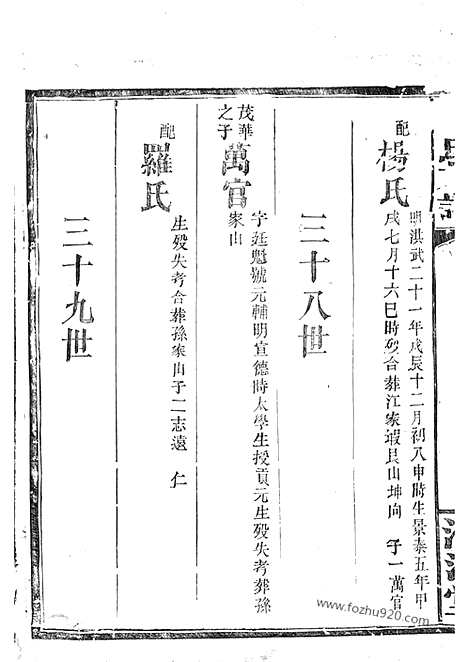 配楊氏
明洪武二十一年戊辰十二月初八申時生景泰五年甲
戌七月十六巳時歿合葬江家塅艮山坤向 子一萬官
三十八世
茂華之子萬官
字廷魁號元輔明宣德時太學生授貢元生歿失考葬孫
家山
配羅氏
生歿失考合葬孫家山子二志遠 仁
三十九世
www.fozhu920.com